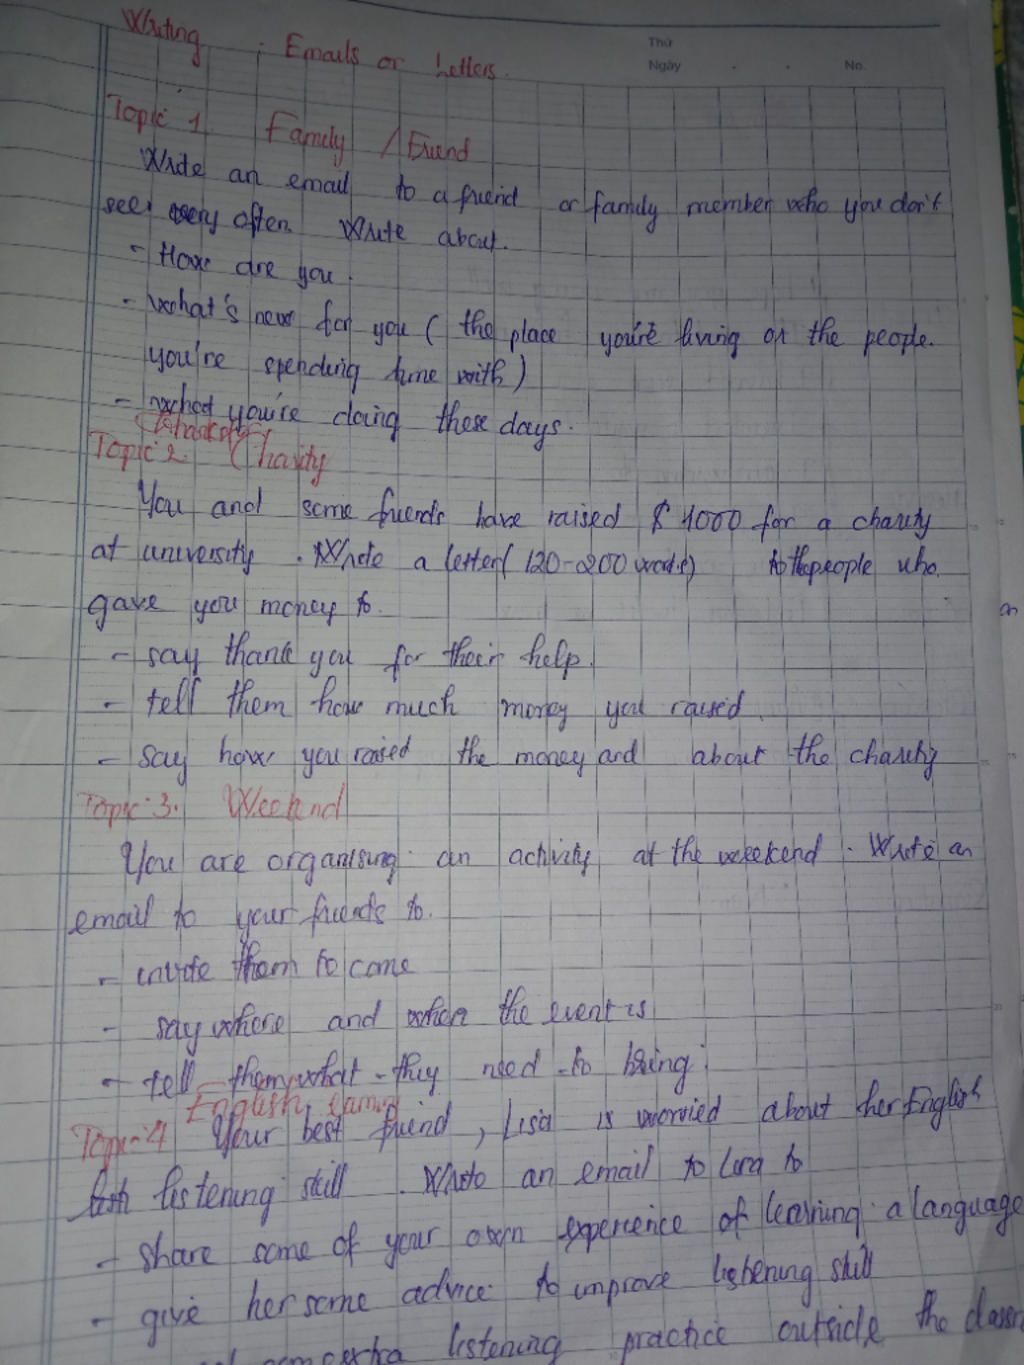 Writing : Emails or Letters.
Thứ
Ngày . . No.
Topic 1 Family / Friend
Write an email to a friend or family member who you don't
see very often. Write about.
- How are you.
- what's new for you ( the place you're living or the people.
you're spending time with)
- what you're doing these days.
Topic 2. Charity
You and some friends have raised $ 1000 for a charity
at university . Write a letter( 120-200 words) to the people who
gave you money to.
- say thank you for their help.
- tell them how much money you raised.
- say how you raised the money and about the charity
Topic 3. Weekend
You are organising an activity at the weekend . Write an
email to your friends to.
- invite them to come
- say where and when the event is
- tell them what they need to bring.
English
Topic 4 Your best friend, Lisa is worried about her English
listening skill . Write an email to Lisa to
- share some of your own experience of learning a language
- give her some advice to improve listening skill
extra listening practice outside the